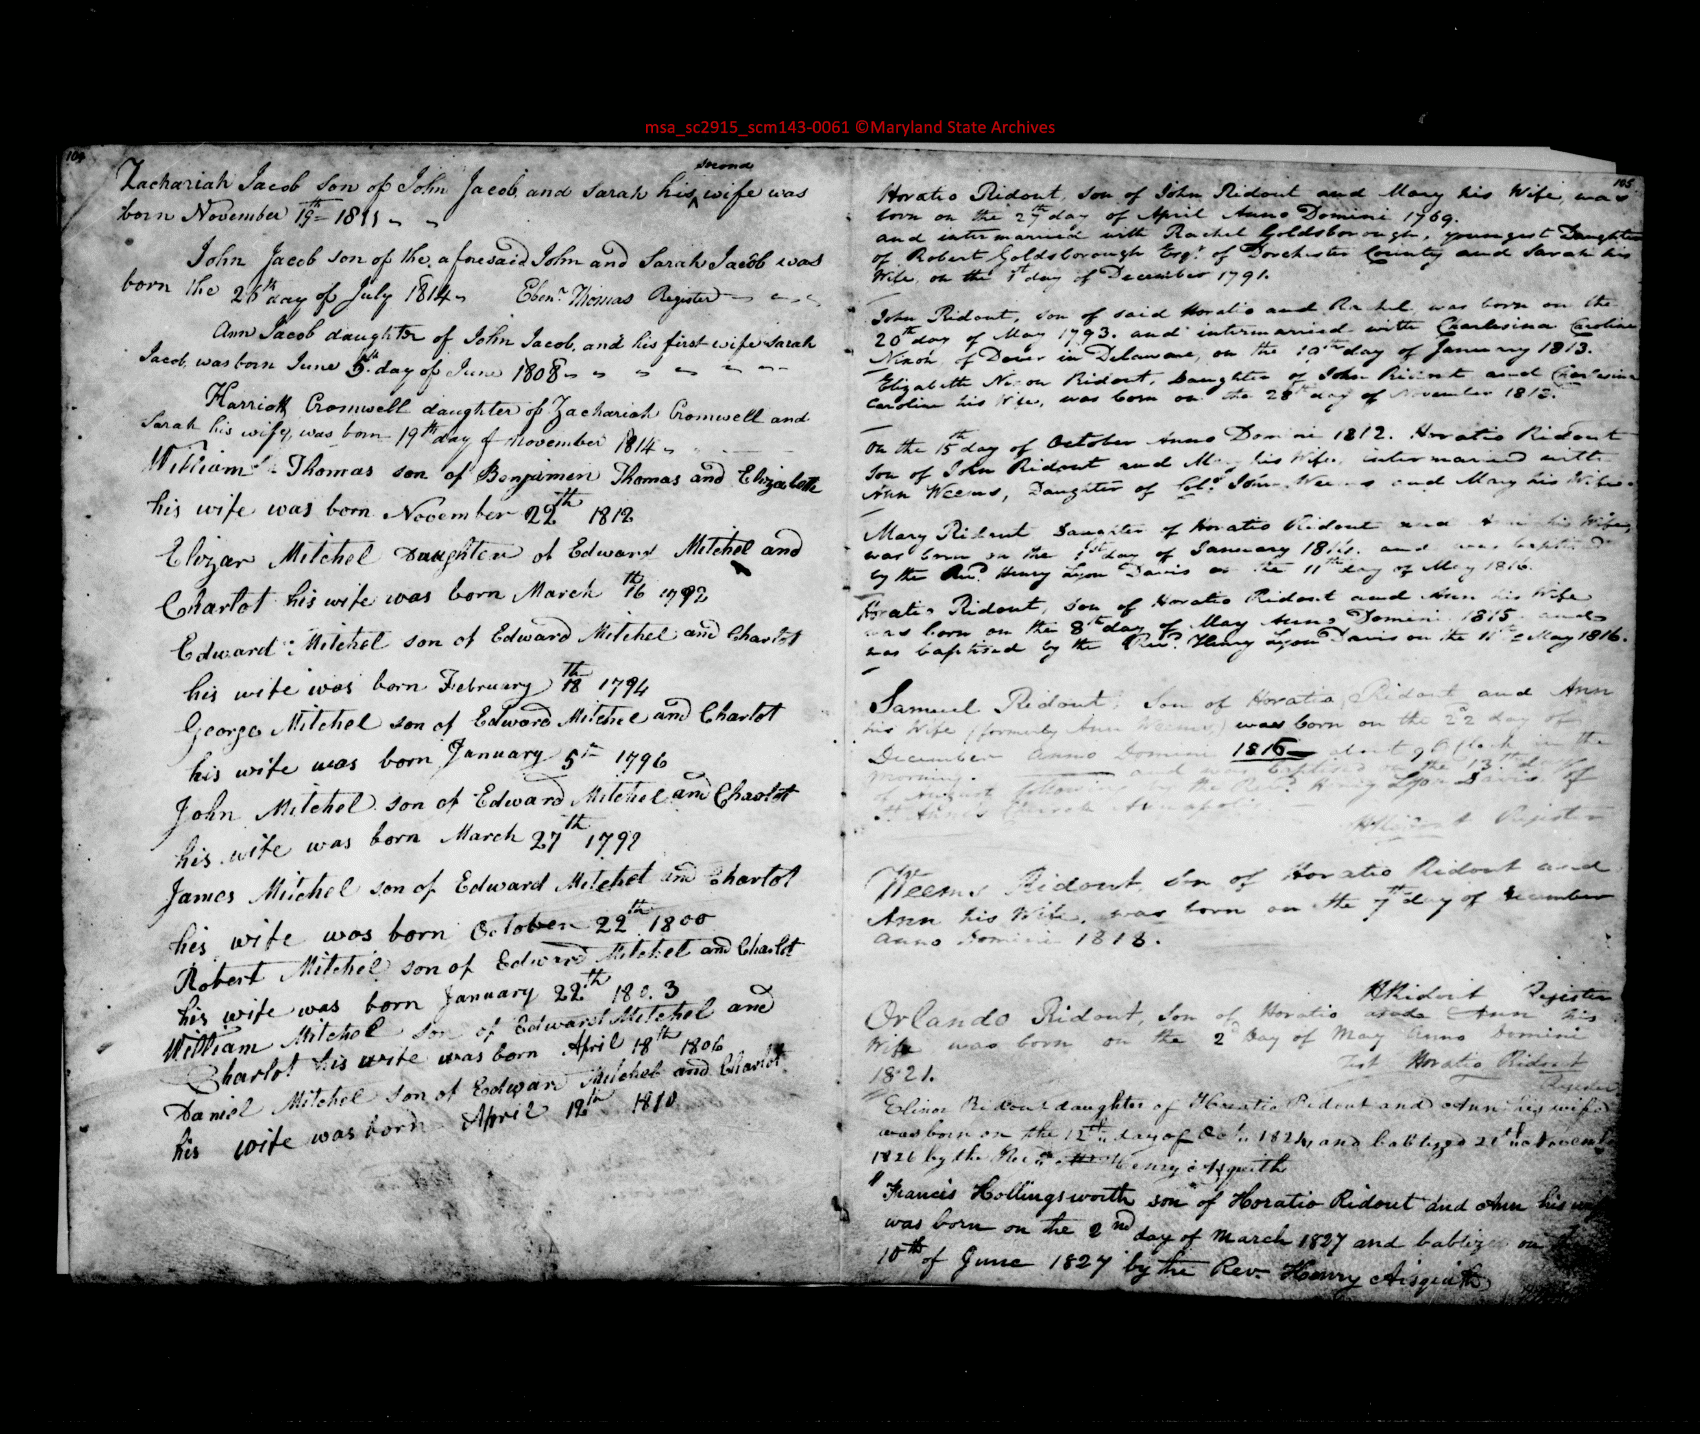 msa_sc2915_scm143-0061 ©Maryland State Archives
104
second
Zachariah Jacob son of John Jacob, and Sarah his ^ wife was
born November 19th 1811
John Jacob son of the aforesaid John and Sarah Jacob was
born the 26th day of July 1814 Ebenr. Thomas Register
Ann Jacob daughter of John Jacob, and his first wife Sarah
Jacob, was born June 5th day of June 1808
Harriott Cromwell daughter of Zachariah Cromwell and
Sarah his wife, was born 19th day of November 1814
William Thomas son of Benjimen Thomas and Elizabeth
his wife was born November 22th 1812
Elizar Mitchel Daughter of Edward Mitchel and
Charlot his wife was born March 16th 1792
Edward Mitchel son of Edward Mitchel and Charlot
his wife was born February 18th 1794
George Mitchel son of Edward Mitchel and Charlot
his wife was born January 5th 1796
John Mitchel son of Edward Mitchel and Charlot
his wife was born March 27th 1792
James Mitchel son of Edward Mitchel and Charlot
his wife was born October 22th 1800
Robert Mitchel son of Edward Mitchel and Charlot
his wife was born January 22th 180.3
William Mitchel son of Edward Mitchel and
Charlot his wife was born April 18th 1806
Daniel Mitchel son of Edward Mitchel and Charlot
his wife was born April 12th 1810
105
Horatio Ridout, son of John Ridout and Mary his Wife, was
born on the 29th day of April Anno Domini 1769.
and intermarried with Rachel Goldsborough, youngest Daughter
of Robert Goldsborough Esqr. of Dorchester County and Sarah his
Wife, on the 1st day of December 1791.
John Ridout, son of said Horatio and Rachel, was born on the
20th day of May 1793. and intermarried with Charlesina Caroline
Nixon, of Dover in Delaware, on the 19th day of January 1813.
Elizabeth Nixon Ridout, Daughter of John Ridout and Charlesina
Caroline his Wife, was born on the 28th day of November 1813.
On the 15th day of October Anno Domini 1812. Horatio Ridout
Son of John Ridout and Mary his Wife, intermarried with
Ann Weems, Daughter of Colo. John Weems and Mary his Wife.
Mary Ridout Daughter of Horatio Ridout and Ann his Wife,
was born on the 1st day of January 1814. and was baptised
by the Revd. Henry Lyon Davis on the 11th day of May 1816.
Horatio Ridout, Son of Horatio Ridout and Ann his Wife
was born on the 8th day of May Anno Domini 1815 and
was baptised by the Revd. Henry Lyon Davis on the 11th May 1816.
Samuel Ridout, Son of Horatio Ridout and Ann
his Wife (formerly Ann Weems) was born on the 22d day of
December Anno Domini 1816 about 9 O'Clock in the
morning. and was baptised on the 13th day
of August following by the Revd. Henry Lyon Davis of
St. Anne's Church Annapolis
H Ridout Register
Weems Ridout, Son of Horatio Ridout and
Ann his Wife, was born on the 7th day of December
anno Domini 1818.
H Ridout Register
Orlando Ridout, Son of Horatio and Ann his
Wife was born on the 2d Day of May Anno Domini
1821. Test Horatio Ridout
Register
Elinor Ridout daughter of Horatio Ridout and Ann his wife
was born on the 12th day of Octr. 1824, and babtized 21st November
1826 by the Revd. Henry Aisquith
Francis Hollingsworth son of Horatio Ridout and Ann his wife
was born on the 2nd day of March 1827 and babtized on
10th of June 1827 by the Rev. Henry Aisquith